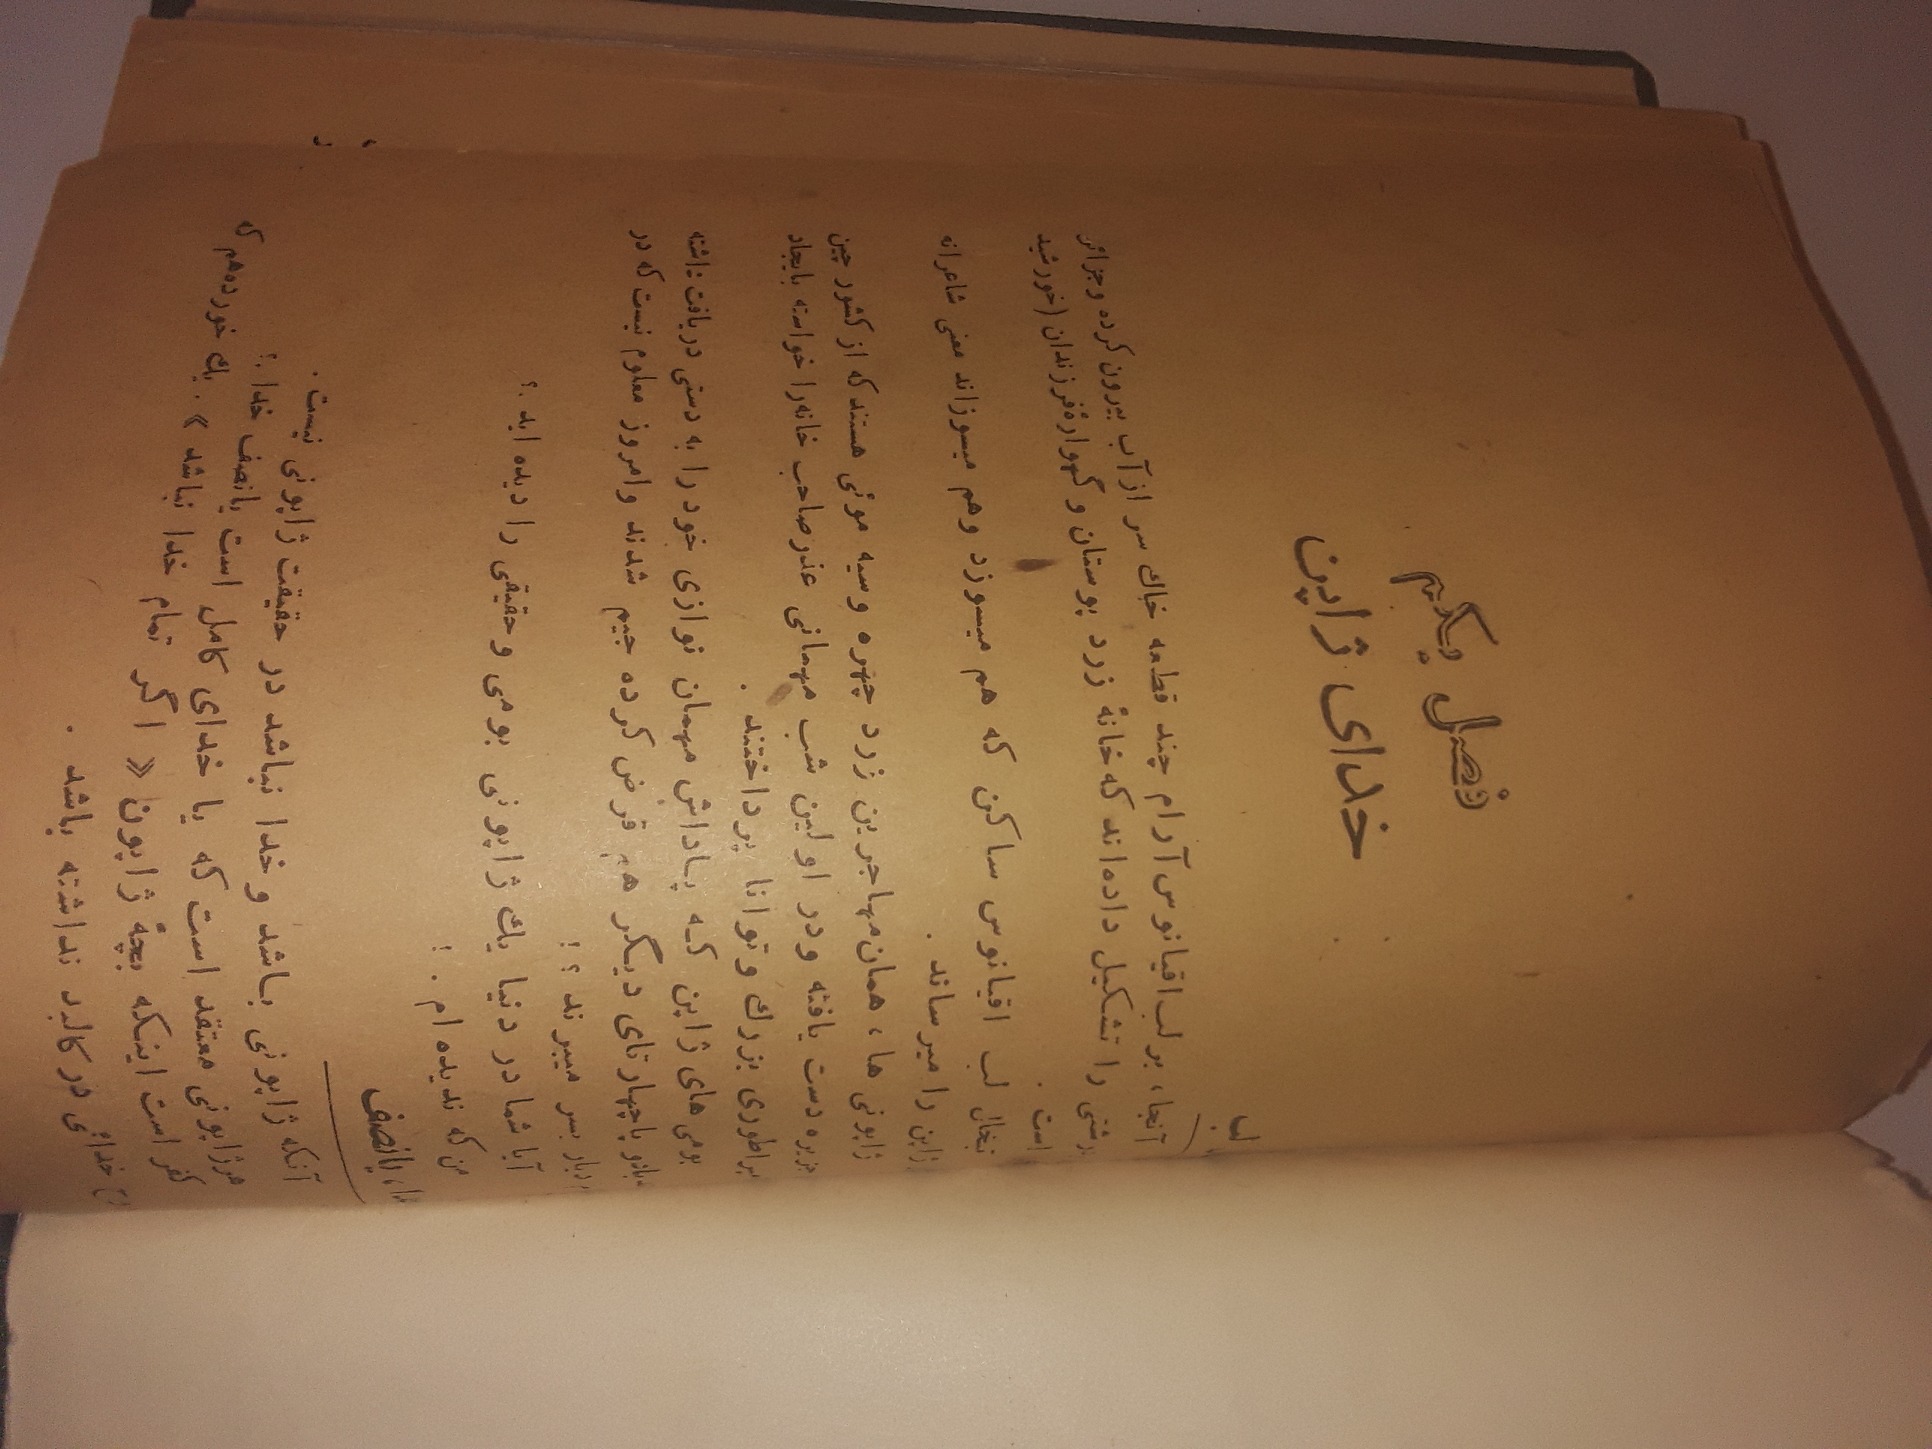 فصل یکم
خدای ژاپن
لب
آنجا، بر لب اقیانوس آرام چند قطعه خاك سر از آب بیرون کرده و جزائر
را تشکیل داده‌اند که خانهٔ زرد پوستان و گهوارهٔ فرزندان (خورشید
است .
لب اقیانوس ساکن که هم میسوزد وهم میسوزاند معنی شاعرانه
ژاپن را میرساند .
ژاپونی ها، همان مهاجرین زرد چهره وسیه موئی هستند که از کشور چین
دست یافته ودر اولین شب مهمانی عذر صاحب خانه را خواسته بایجاد
بزرك وتوانا پرداختند .
بومی های ژاپن کـه پـاداش مهمان نوازی خود را به دستی دریافت داشته
یاچهارتای دیگر هم قرض کرده جیم شدند وامروز معلوم نیست که در
دیار بسر میبرند ؟!
آیا شما در دنیا یك ژاپونی بومی وحقیقی را دیده اید ؟
من که ندیده ام . !
یانصف خدا ؟
آنکه ژاپونی بـاشد و خدا نباشد در حقیقت ژاپونی نیست .
هرژاپونی معتقد است که یا خدای کامل است یانصف خدا . یك خورده‌هم که
کفر است اینکه بچهٔ ژاپون « اگر تمام خدا نباشد »
خدائی در کالبد نداشته باشد .